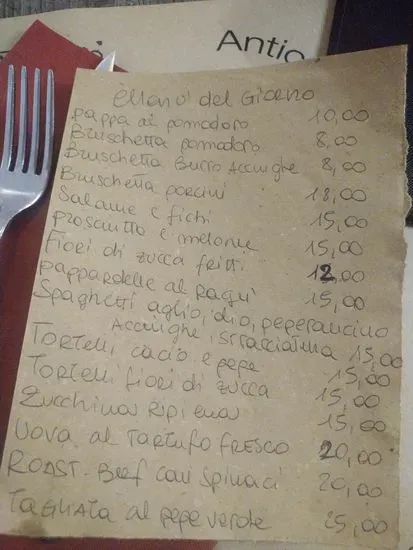 Antio
Menù del Giorno
pappa al pomodoro 10,00
Bruschetta pomodoro 8,00
Bruschetta Burro Acciughe 8,00
Bruschetta porcini 18,00
Salame e fichi 15,00
prosciutto e melone 15,00
Fiori di zucca fritti 12,00
pappardelle al Ragù 15,00
Spaghetti aglio, olio, peperoncino
Acciughe, straciatella 15,00
Tortelli cacio e pepe 15,00
Tortelli fiori di zucca 15,00
Zucchina Ripiena 15,00
Uova al Tartufo fresco 20,00
Roast-Beef con Spinaci 20,00
Tagliata al pepe verde 25,00